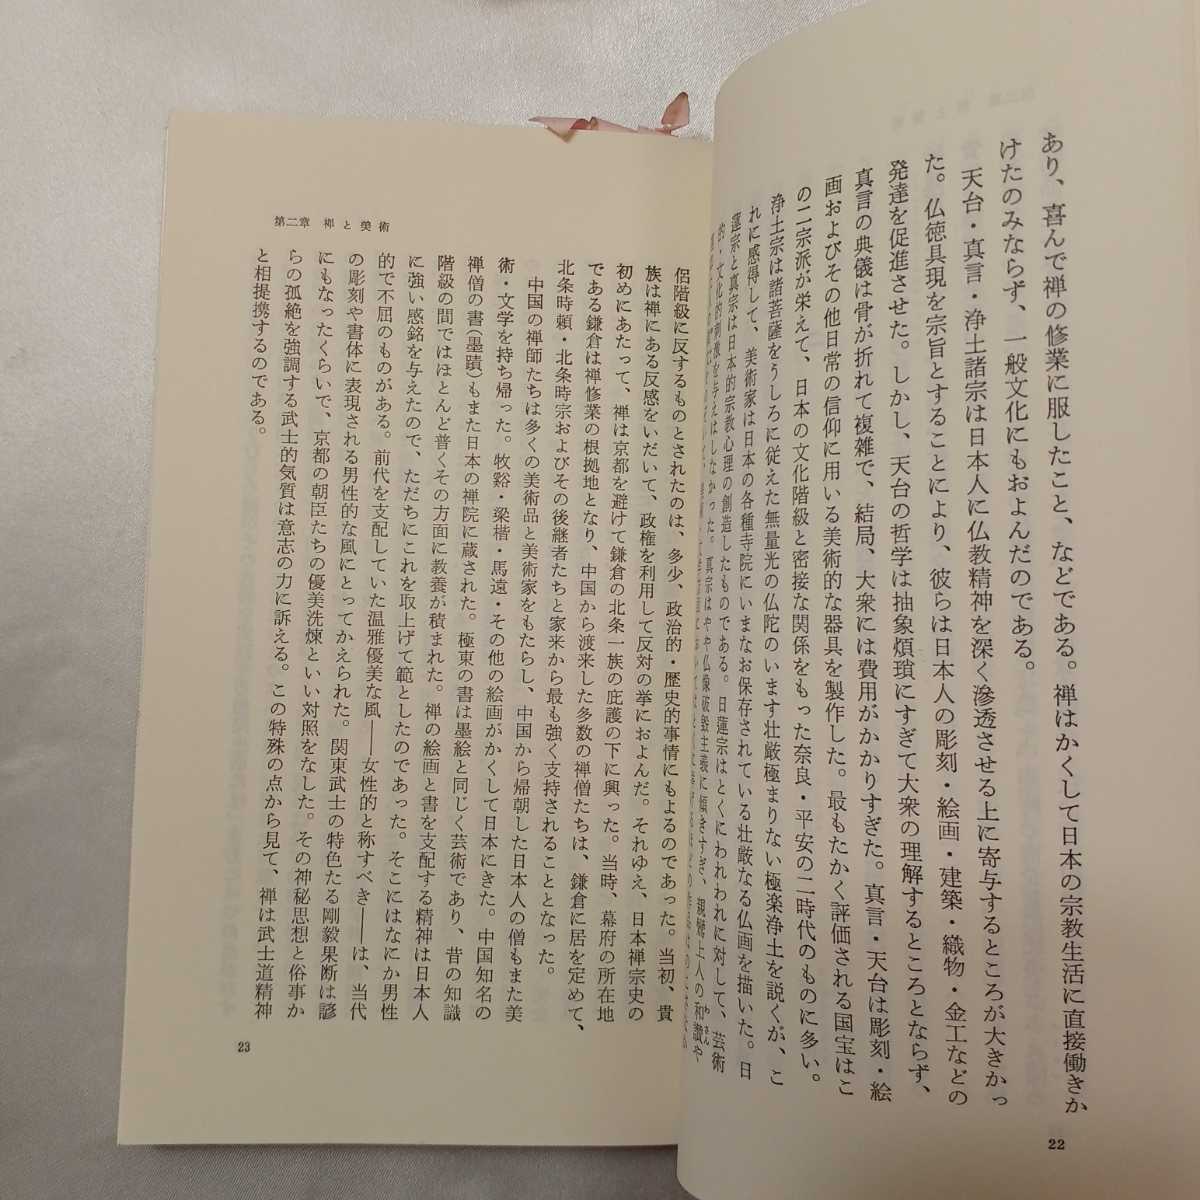 あり、喜んで禅の修業に服したこと、などである。禅はかくして日本の宗教生活に直接働きか
けたのみならず、一般文化にもおよんだのである。
天台・真言・浄土諸宗は日本人に仏教精神を深く滲透させる上に寄与するところが大きかっ
た。仏徳具現を宗旨とすることにより、彼らは日本人の彫刻・絵画・建築・織物・金工などの
発達を促進させた。しかし、天台の哲学は抽象煩瑣にすぎて大衆の理解するところとならず、
真言の典儀は骨が折れて複雑で、結局、大衆には費用がかかりすぎた。真言・天台は彫刻・絵
画およびその他日常の信仰に用いる美術的な器具を製作した。最もたかく評価される国宝はこ
の二宗派が栄えて、日本の文化階級と密接な関係をもった奈良・平安の二時代のものに多い。
浄土宗は諸菩薩をうしろに従えた無量光の仏陀のいます壮厳極まりない極楽浄土を説くが、こ
れに感得して、美術家は日本の各種寺院にいまなお保存されている壮厳なる仏画を描いた。日
蓮宗と真宗は日本的宗教心理の創造したものである。日蓮宗はとくにわれわれに対して、芸術
的・文化的刺激を与えはしなかった。真宗はやや仏像破毀主義に傾きすぎ、親鸞上人の和讃や
22
第二章 禅と美術
侶階級に反するものとされたのは、多少、政治的・歴史的事情にもよるのであった。当初、貴
族は禅にある反感をいだいて、政権を利用して反対の挙におよんだ。それゆえ、日本禅宗史の
初めにあたって、禅は京都を避けて鎌倉の北条一族の庇護の下に興った。当時、幕府の所在地
である鎌倉は禅修業の根拠地となり、中国から渡来した多数の禅僧たちは、鎌倉に居を定めて、
北条時頼・北条時宗およびその後継者たちと家来から最も強く支持されることとなった。
中国の禅師たちは多くの美術品と美術家をもたらし、中国から帰朝した日本人の僧もまた美
術・文学を持ち帰った。牧谿・梁楷・馬遠・その他の絵画がかくして日本にきた。中国知名の
禅僧の書(墨蹟)もまた日本の禅院に蔵された。極東の書は墨絵と同じく芸術であり、昔の知識
階級の間ではほとんど普くその方面に教養が積まれた。禅の絵画と書を支配する精神は日本人
に強い感銘を与えたので、ただちにこれを取上げて範としたのであった。そこにはなにか男性
的で不屈のものがある。前代を支配していた温雅優美な風――女性的と称すべき――は、当代
の彫刻や書体に表現される男性的な風にとってかえられた。関東武士の特色たる剛毅果断は諺
にもなったくらいで、京都の朝臣たちの優美洗煉といい対照をなした。その神秘思想と俗事か
らの孤絶を強調する武士的気質は意志の力に訴える。この特殊の点から見て、禅は武士道精神
と相提携するのである。
23